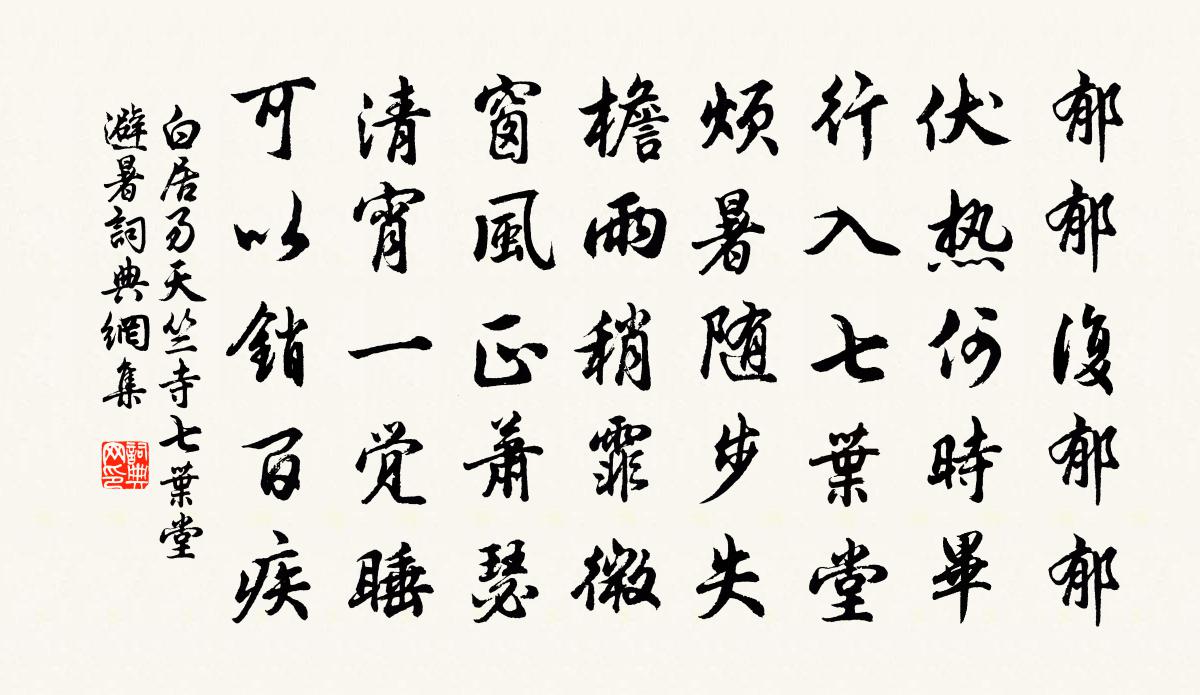 郁郁復郁郁
伏热何時畢
行入七葉堂
烦暑随步失
檐雨稍霏微
窗風正蕭瑟
清宵一觉睡
可以銷百疾
白居易天竺寺七葉堂
避暑詞典網集
詞典
网印